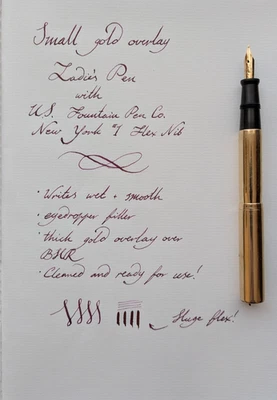 Small gold overlay
Ladies Pen
with
U.S. Fountain Pen Co.
New York #1 Flex Nib
· Writes wet + smooth
· eyedropper filler
· thick gold overlay over
BHR
· Cleaned and ready for use!
Huge flex!